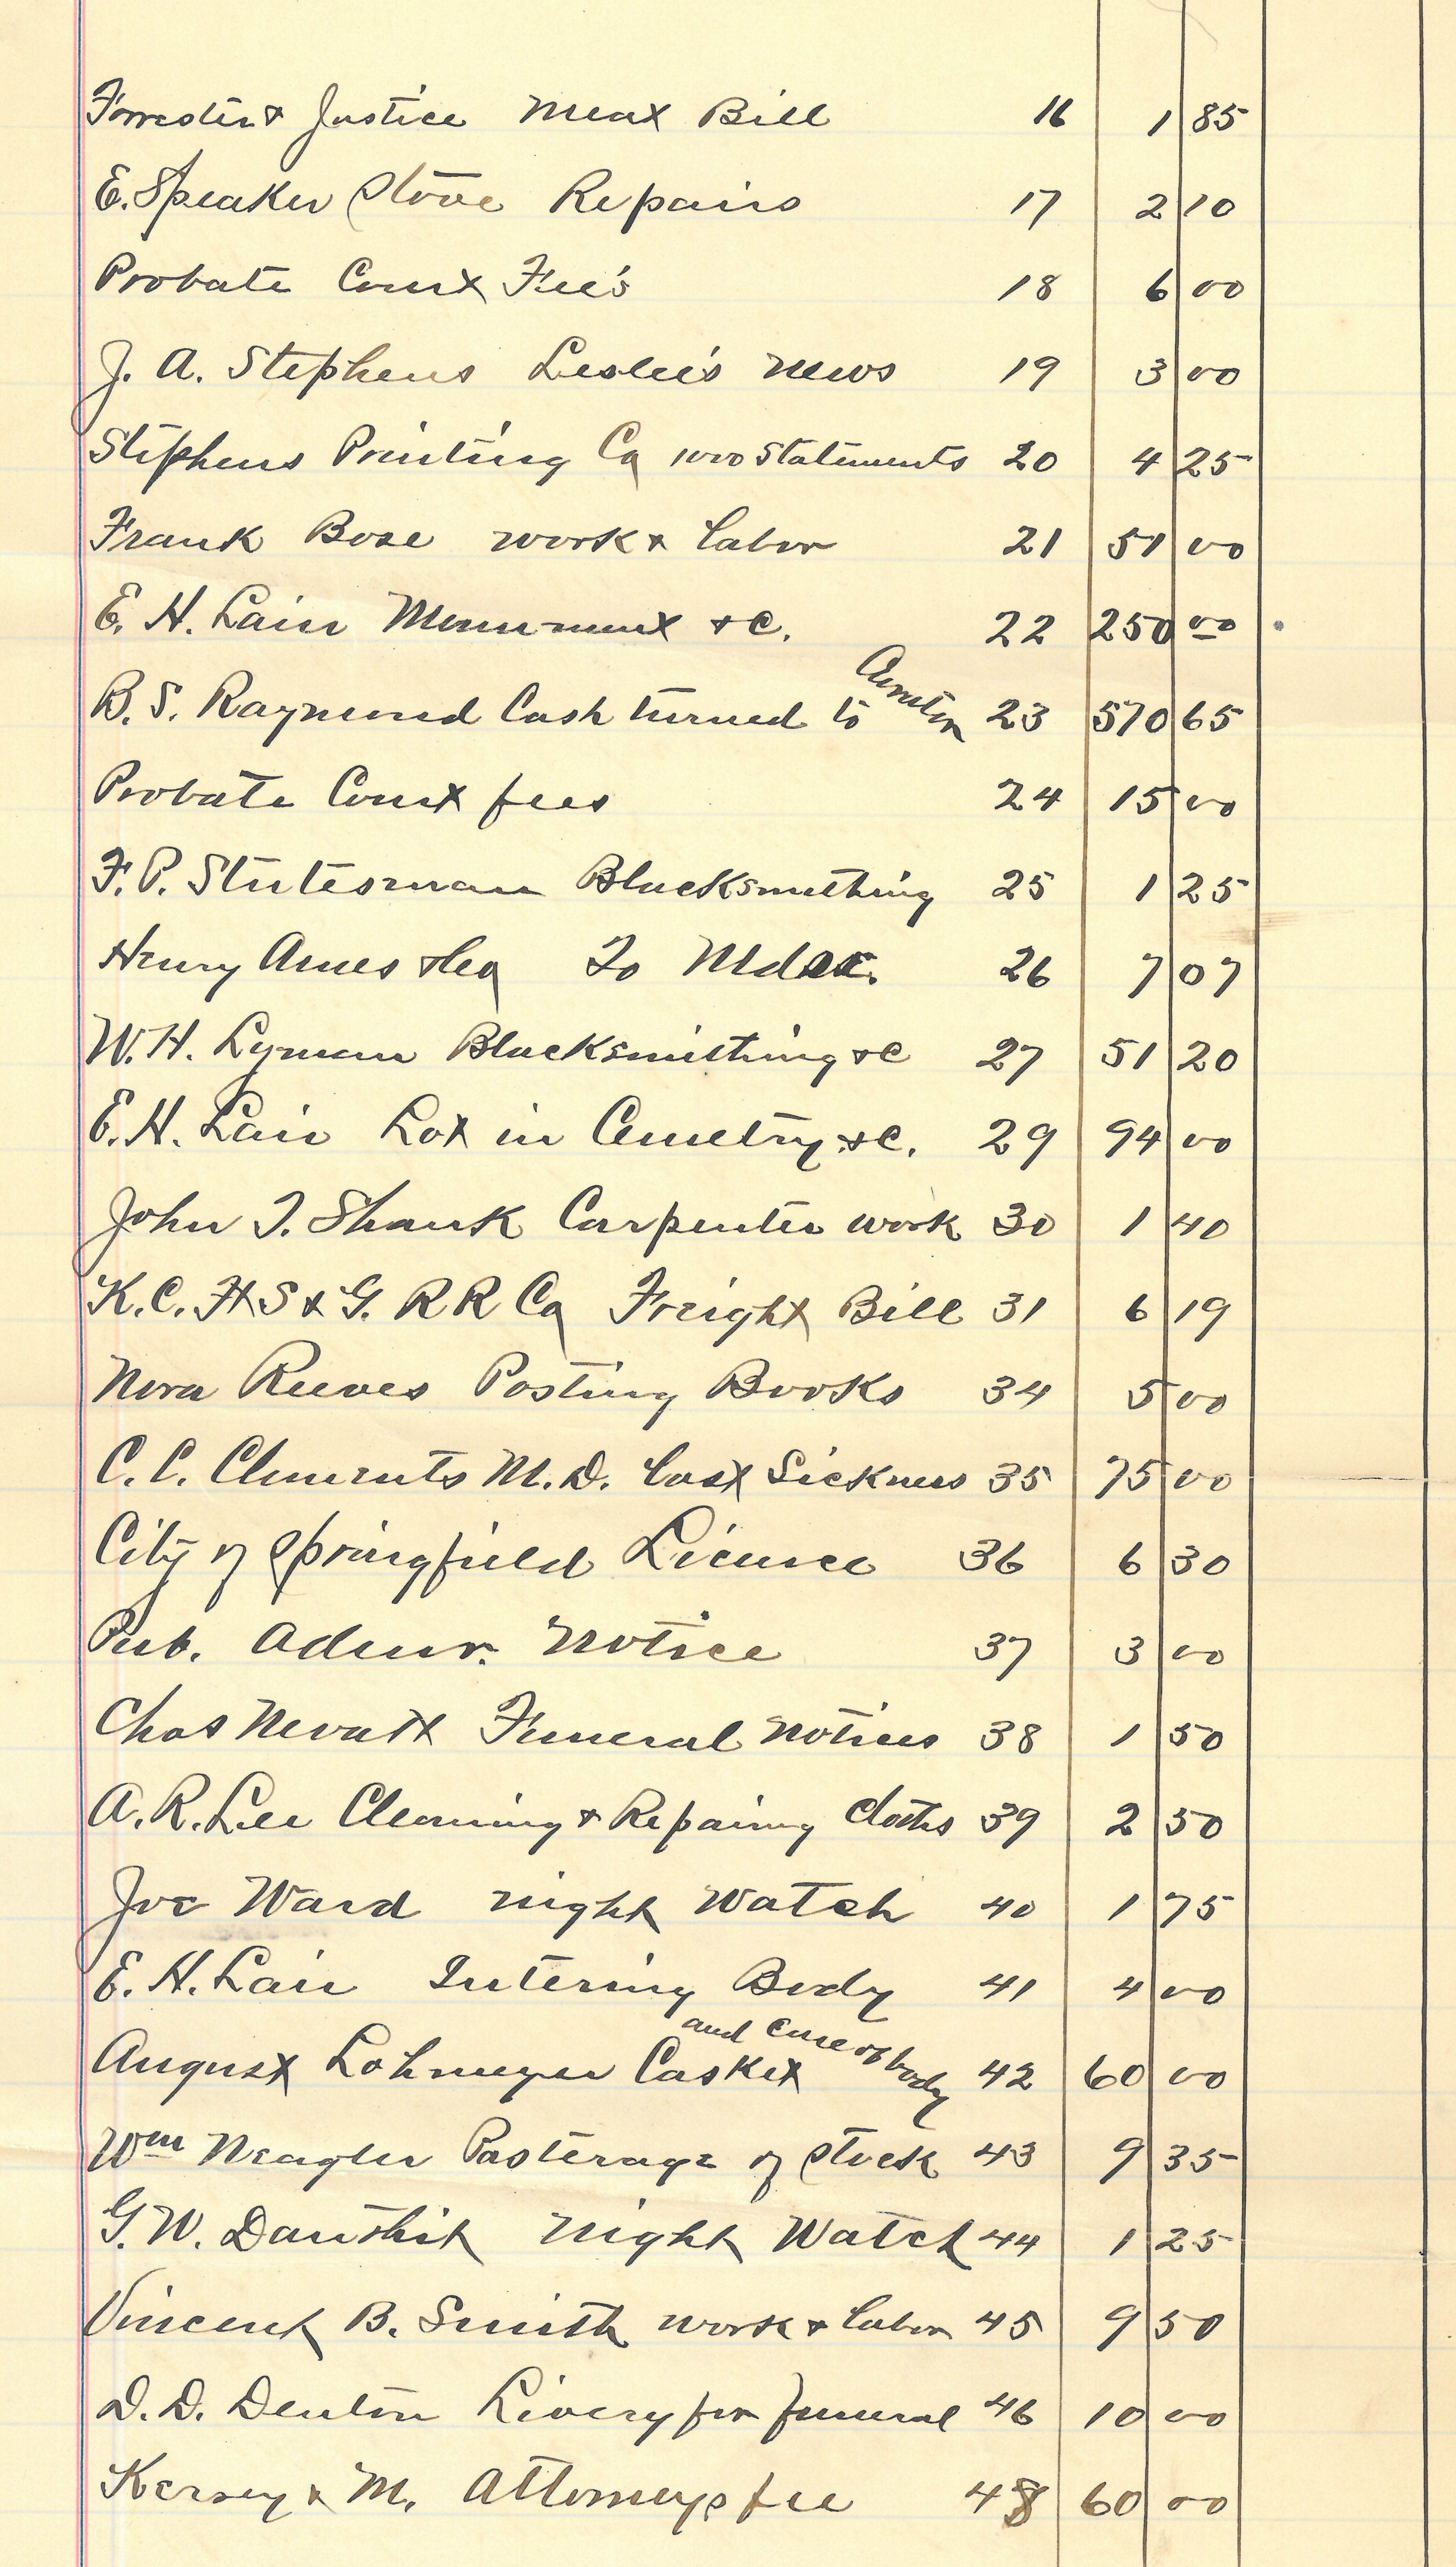 Forrester & Justice Meat Bill 16 1 85
E. Speaker Stove Repairs 17 2 10
Probate Court Fee's 18 6 00
J. A. Stephens Leslie's News 19 3 00
Stephens Printing Co 1000 Statements 20 4 25
Frank Bose work & labor 21 51 00
E. H. Lair Monument &c. 22 250 00
B. S. Raymond Cash turned to Curator 23 570 65
Probate Court fees 24 15 00
F. P. Stutesman Blacksmithing 25 1 25
Henry Ames & Co To Mdse. 26 7 07
W. H. Lyman Blacksmithing &c 27 51 20
E. H. Lair Lot in Cemetry &c. 29 94 00
John T. Shank Carpenter work 30 1 40
K. C. Ft S & G. R R Co Freight Bill 31 6 19
Nora Reeves Posting Books 34 5 00
C. C. Clements M. D. last Sickness 35 75 00
City of Springfield License 36 6 30
Pub. Admr. Notice 37 3 00
Chas Nevatt Funeral notices 38 1 50
A. R. Lee Cleaning & Repairing cloths 39 2 50
Joe Ward night Watch 40 1 75
E. H. Lair Intering Body 41 4 00
August Lohmeyer Casket and care of body 42 60 00
Wm Neagler Pasterage of stock 43 9 35
G. W. night Watch 44 1 25
Vincent B. Smith work & labor 45 9 50
D. D. Denton Livery for funeral 46 10 00
Kersey & M. Attorneys fee 48 60 00